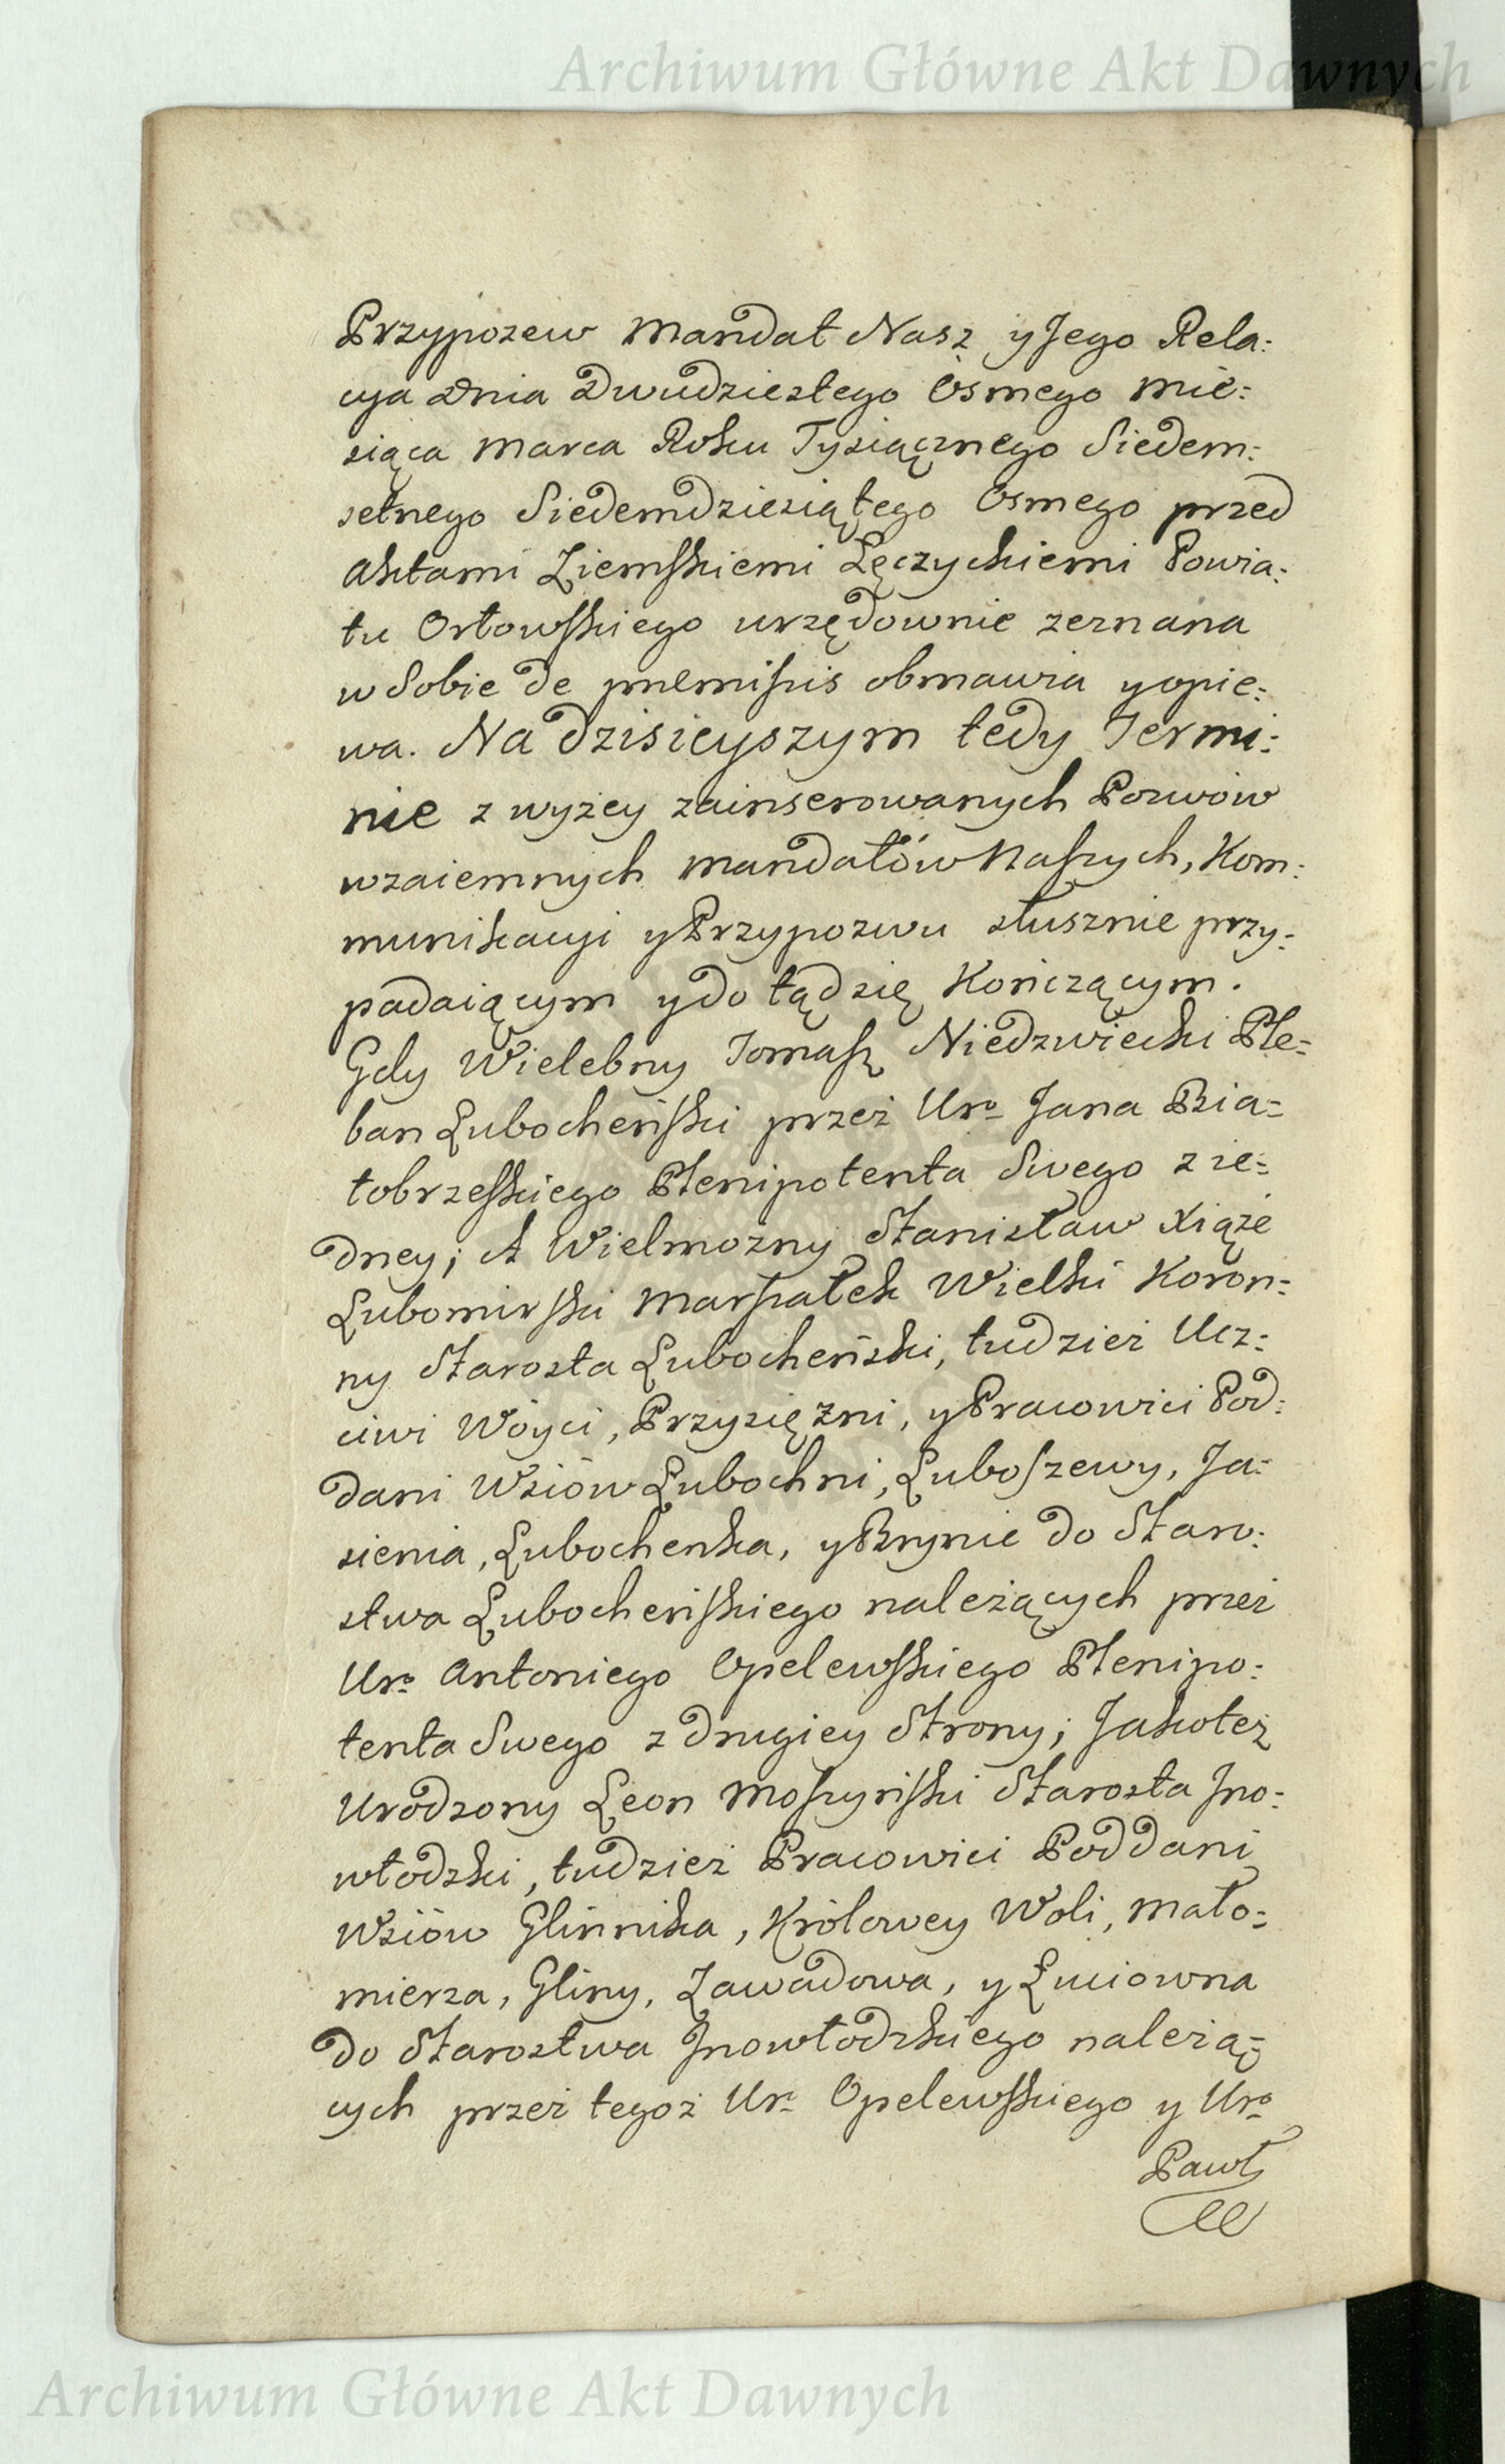 Archiwum Główne Akt Dawnych
Przypozew Mandat Nasz y Jego Rela:
cya Dnia Dwudziestego Osmego Mie:
siąca Marca Roku Tysiącznego Siedem:
setnego Siedemdziesiątego Osmego przed
Aktami Ziemskiemi Łęczyckiemi Powia:
tu Orłowskiego urzędownie zeznana
w Sobie de præmissis obmawia y opie:
wa. Na dzisieyszym tedy Termi:
nie z wyżey zainserowanych Pozwow
wzaiemnych Mandatów Naszych, Kom:
munikacyi y Przypozwu słusznie przy:
padaiącym y do tąd się Kończącym.
Gdy Wielebny Tomasz Niedzwiecki Ple:
ban Lubocheński przez Uro Jana Bia:
łobrzeskiego Plenipotenta Swego z ie:
dney; A Wielmożny Stanisław Xiąże
Lubomirski Marszałek Wielki Koron:
ny Starosta Lubocheński, tudzież Ucz:
ciwi Wóyci, Przysiężni, y Pracowici Pod:
dani Wsiów Lubochni, Luboszewy, Ja:
sienia, Lubochenka, y Brynic do Staro:
stwa Lubocheńskiego należących przez
Uro Antoniego Opelewskiego Plenipo:
tenta Swego z drugiey Strony; Jakoteż
Urodzony Leon Moszyński Starosta Jno:
włodzki, tudzież Pracowici Poddani
Wsiów Glinnika, Królowey Woli, Mało:
mierza, Gliny, Zawadowa, y Luciowna
do Starostwa Jnowłodzkiego należą:
cych przez tegoż Uro Opelewskiego y Uro
Pawł
Archiwum Główne Akt Dawnych